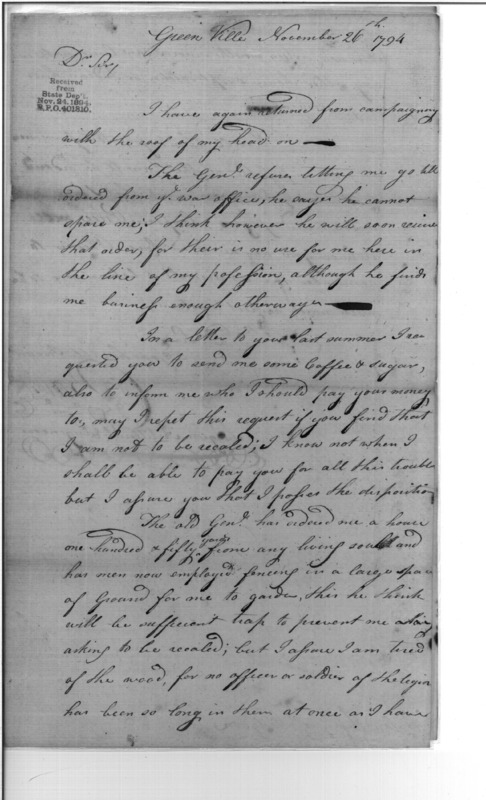 Green Ville November 26th. 1794
Dr. Sir,
Received
from
State Dep't.
Nov. 24. 1894.
R.P.O. 401810.
I have again returned from campaigning
with the roof of my head on —
The Genl. refuses letting me go till
ordered from ye. war office, he sayes he cannot
spare me; I think however he will soon receive
that order, for their is no use for me here in
the line of my profession, although he finds
me business enough otherwayes —
In a letter to you last summer I re
quested you to send me some Coffee & sugar,
also to inform me who I should pay your money
to, may I repet this request if you find that
I am not to be recaled; I know not when I
shall be able to pay you for all this trouble
but I assure you that I posses the disposition
The old Genl. has ordered me a house
one hundred & fifty yards from any living soul and
has men now employd fencing in a large space
of Ground for me to garden, this he think
will be sufficent trap to prevent me
asking to be recaled; but I assure I am tired
of the wood, for no officer or soldier of the legion
has been so long in them at once as I have